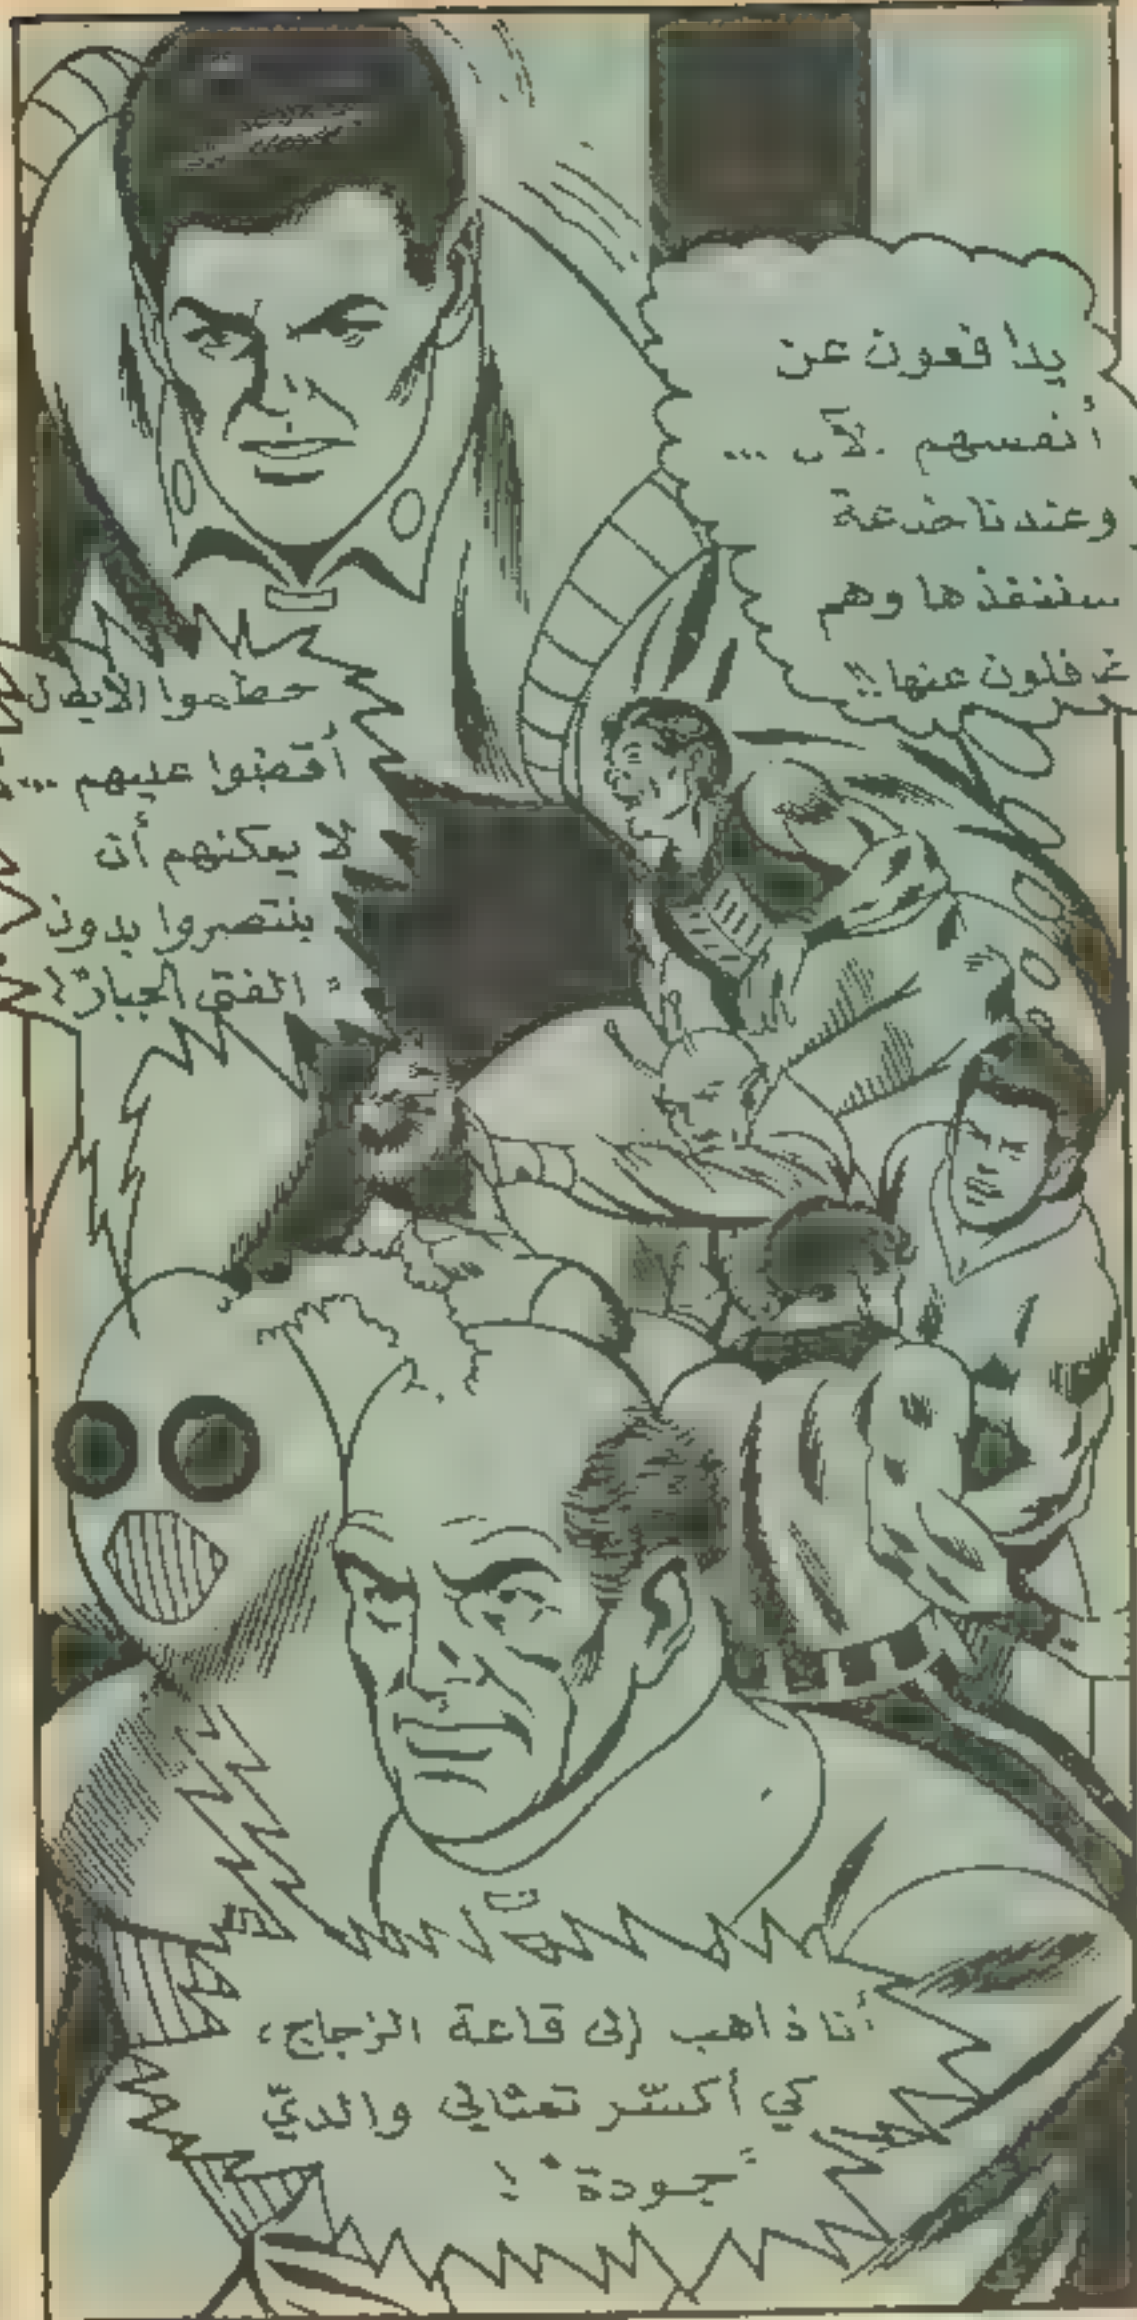 يدافعون عن
أنفسهم الآن ...
وعندنا خدعة
سننفذها وهم
غافلون عنها!!
حطموا الأبطال
أقضوا عليهم ...
لا يمكنهم أن
ينتصروا بدون
"الفتى الجبار"!
أنا ذاهب إلى قاعة الزجاج،
كي أكسّر تمثالي والديّ
"جودة"!